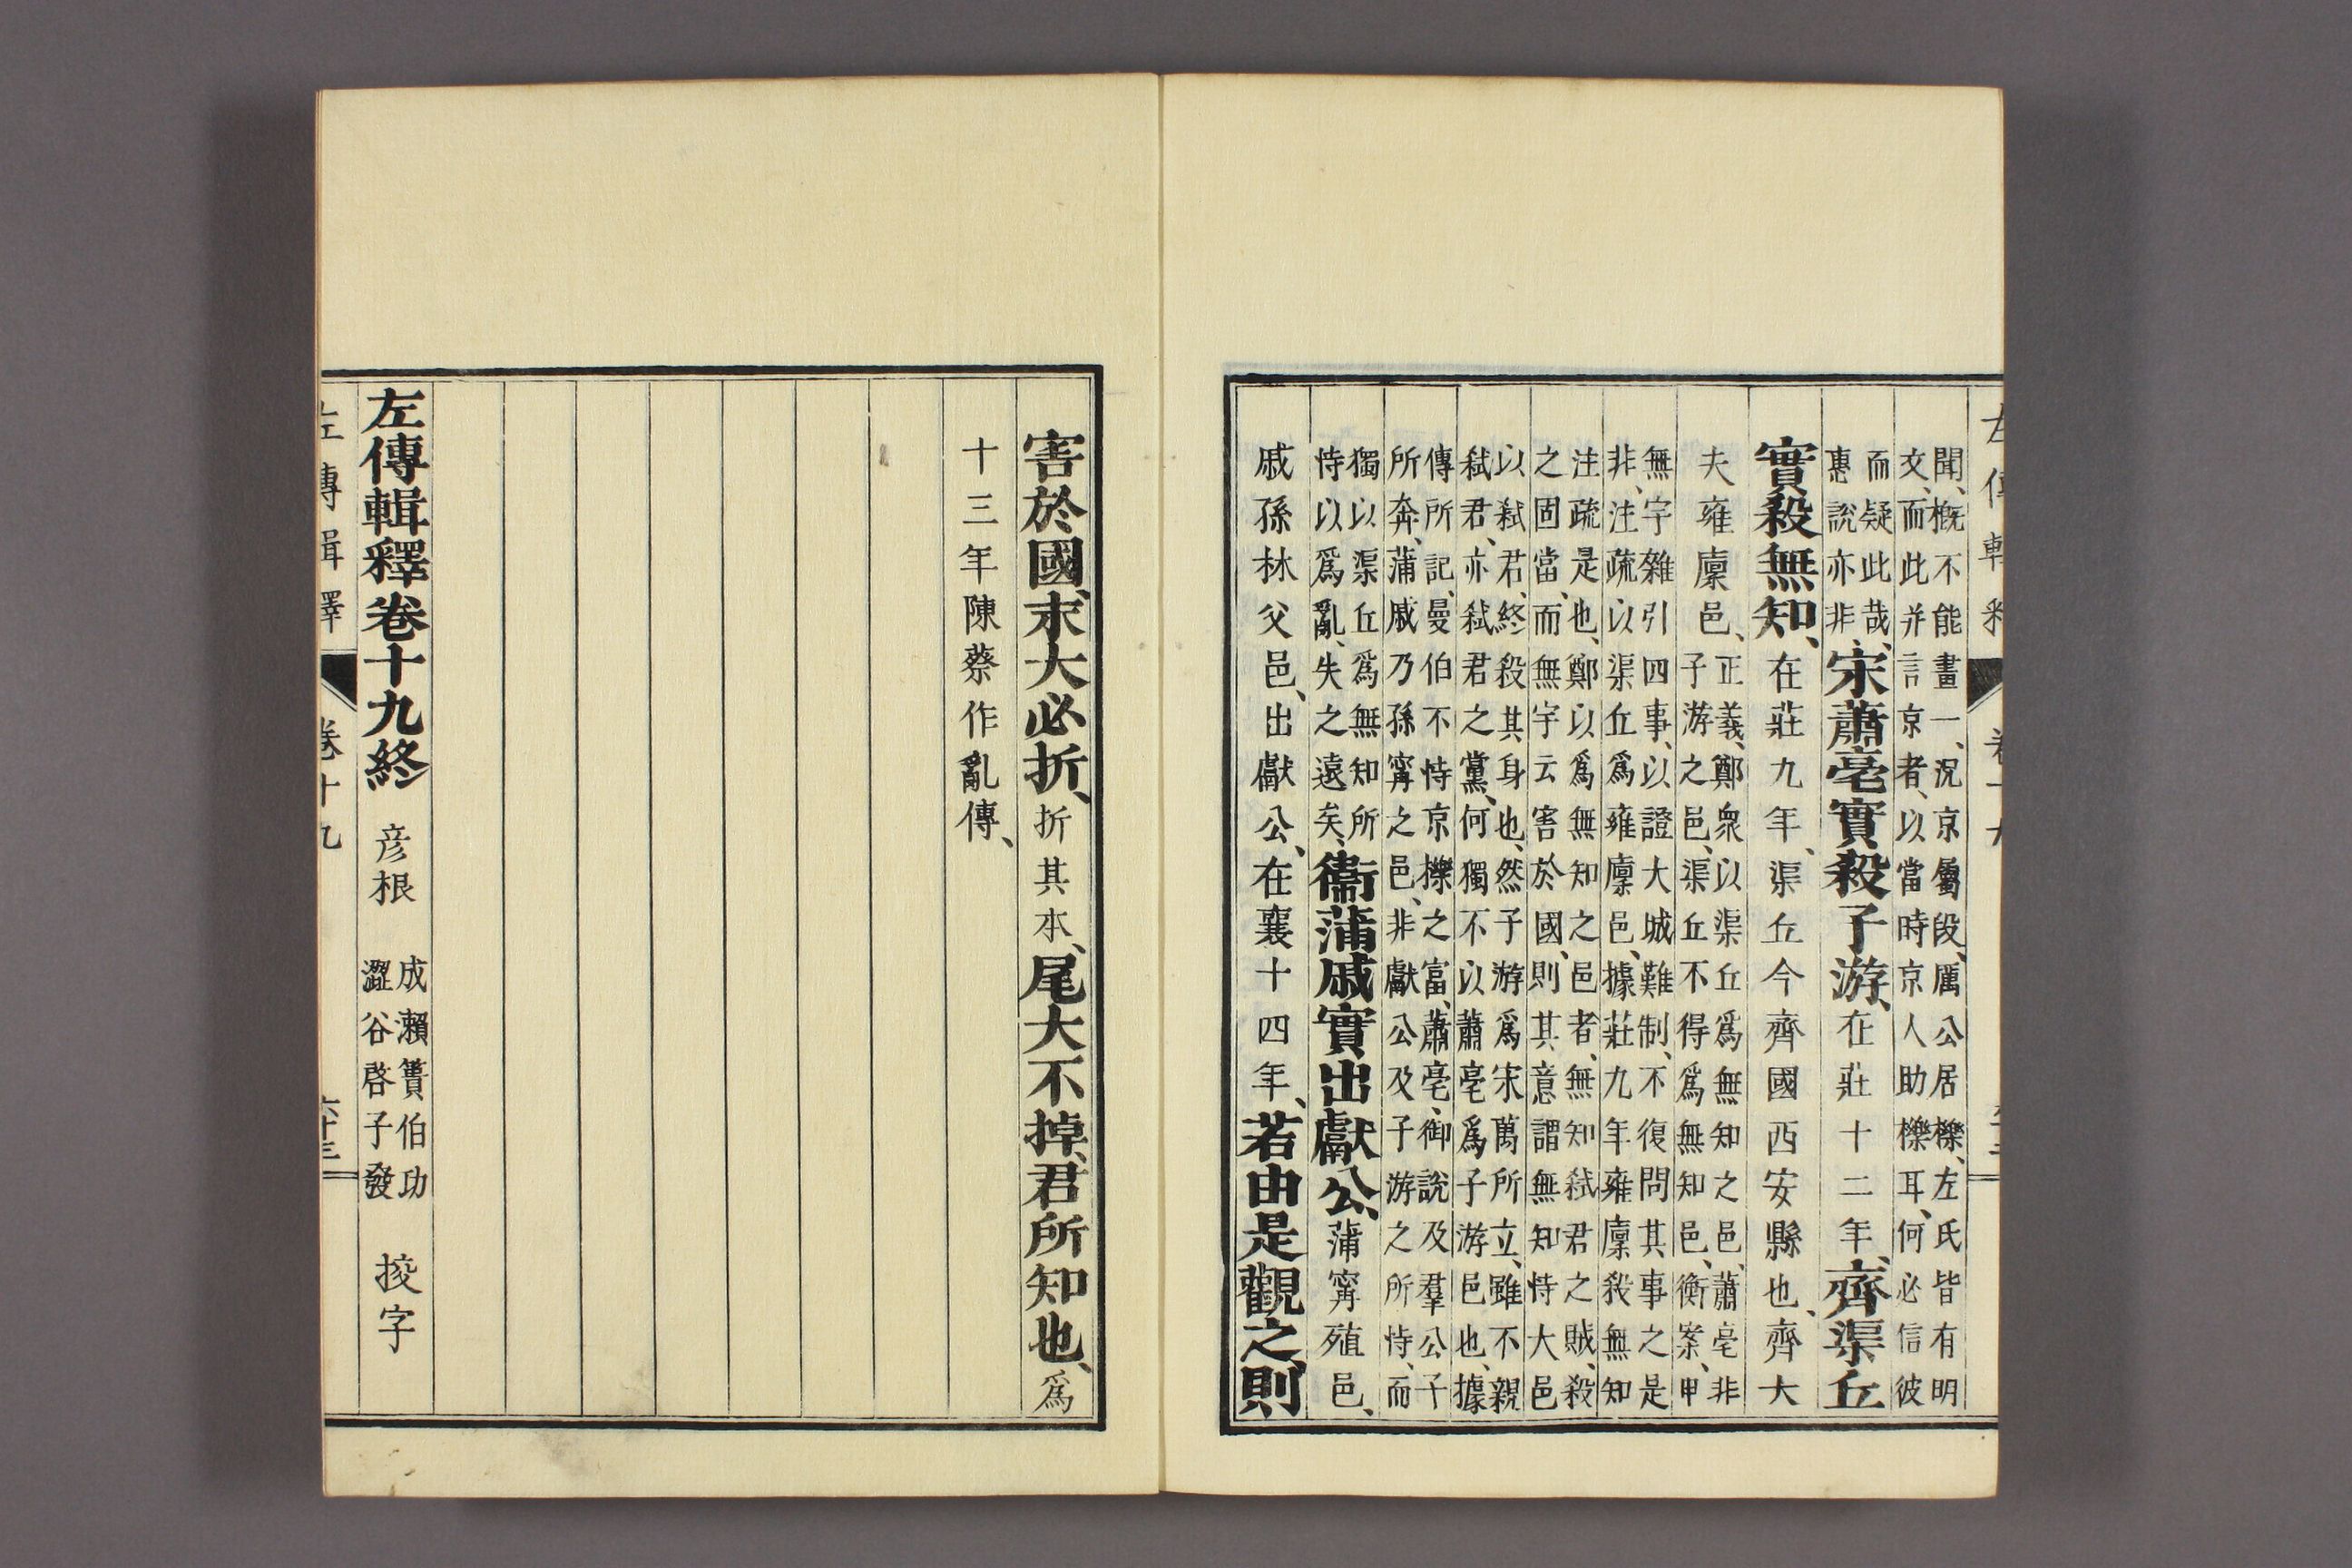 聞、概不能畫一、況京屬段、厲公居櫟、左氏皆有明
文、而此并言京者、以當時京人助櫟耳、何必信彼
而疑此哉、
惠說亦非、宋蕭亳實殺子游、在莊十二年、齊渠丘
實殺無知、在莊九年、渠丘今齊國西安縣也、齊大
夫雍廩邑、正義、鄭衆以渠丘爲無知之邑、蕭亳非
子游之邑、渠丘不得爲無知邑、衡案、申
無宇雜引四事、以證大城難制、不復問其事之是
非、注疏以渠丘爲雍廩邑、據莊九年雍廩殺無知
注疏是也、鄭以爲無知之邑者、無知弑君之賊、殺
之固當、而無宇云害於國、則其意謂無知恃大邑
以弑君、終殺其身也、然子游爲宋萬所立、雖不親
弑君、亦弑君之黨、何獨不以蕭亳爲子游邑也、據
傳所記、曼伯不恃京櫟之富、蕭亳、御說及羣公子
所奔、蒲戚乃孫甯之邑、非獻公及子游之所恃、而
獨以渠丘爲無知所
恃以爲亂、失之遠矣、衞蒲戚實出獻公、蒲甯殖邑、
戚孫林父邑、出獻公、在襄十四年、若由是觀之、則
害於國、末大必折、折其本、尾大不掉、君所知也、爲
十三年陳蔡作亂傳、
左傳輯釋卷十九終 彦根 成瀨簣伯功
澀谷啓子發 挍字
左傳輯釋 卷十九 六十三